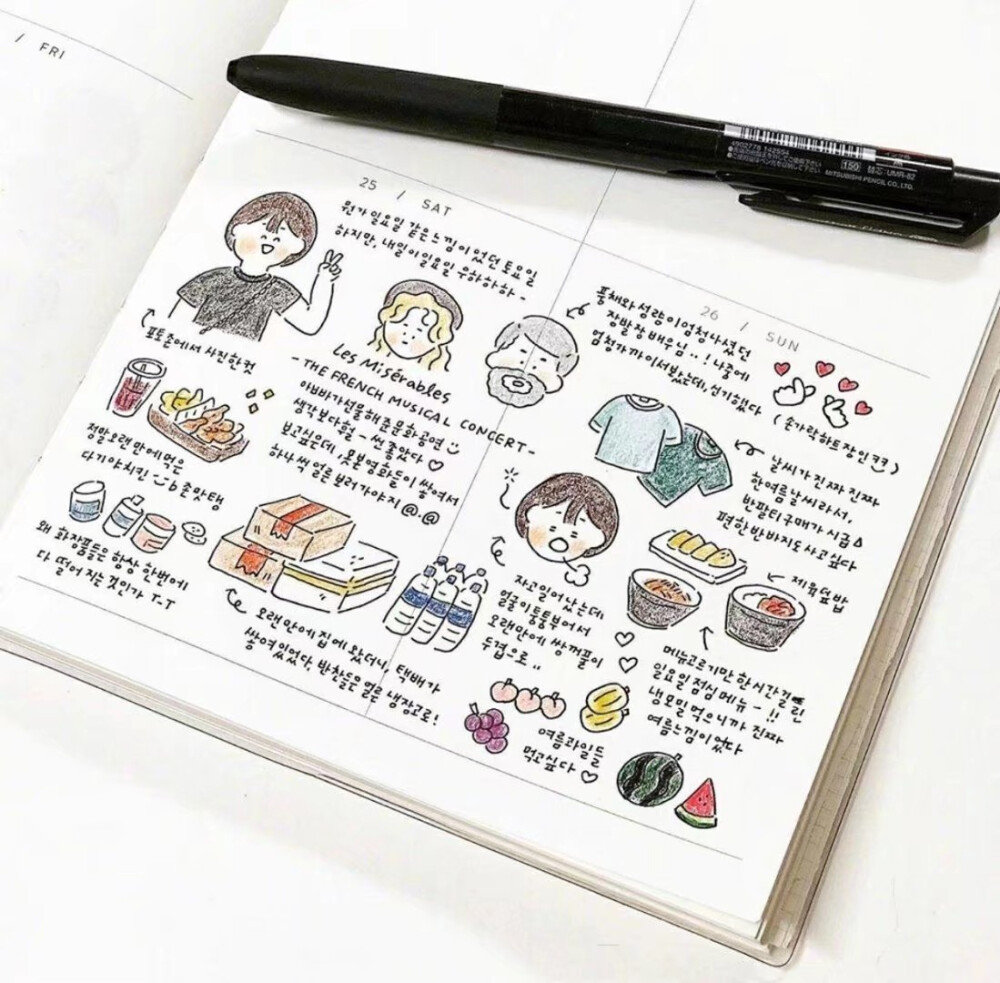 / FRI
4902778 142554
150
UMR-82
MITSUBISHI PENCIL CO., LTD.
25 / SAT
뭔가 일요일 같은 느낌이 었던 토요일
하지만, 내일이 일요일 우하하하하 -
포토존에서 사진한컷
Les Misérables
- THE FRENCH MUSICAL CONCERT -
아빠가 선물해준 문화공연
생각보다 훨 - 씬 좋았다 ♡
보고싶은데 못본 영화들이 쌓여서
하나씩 얼른 보러가야지 @.@
정말 오래만에 먹은
다기야치킨 b 존맛탱
왜 화장품들은 항상 한번에
다 떨어 지는 것인가 T-T
오래만에 집에 왔더니, 택배가
쌓여있었다 반찬들은 얼른 냉장고로!
26 / SUN
풍채와 성량이 엄청나셨던
장발장 배우님..! 나중에
엄청 가까이서 봤는데, 신기했다
(손가락하트 장인 ㅋㅋ)
날씨가 진짜 진짜
한여름 날씨라서,
반팔티 구매가 시급
편한 반바지도 사고싶다
자고 일어났는데
얼굴이 퉁퉁 부어서
오랜만에 쌍꺼풀이
두겹으로..
제육덮밥
메뉴고르기만 한시간 걸린
일요일 점심 메뉴 - !!
냉모밀 먹으니까 진짜
여름 느낌이 었다
여름과일들
먹고싶다 ♡